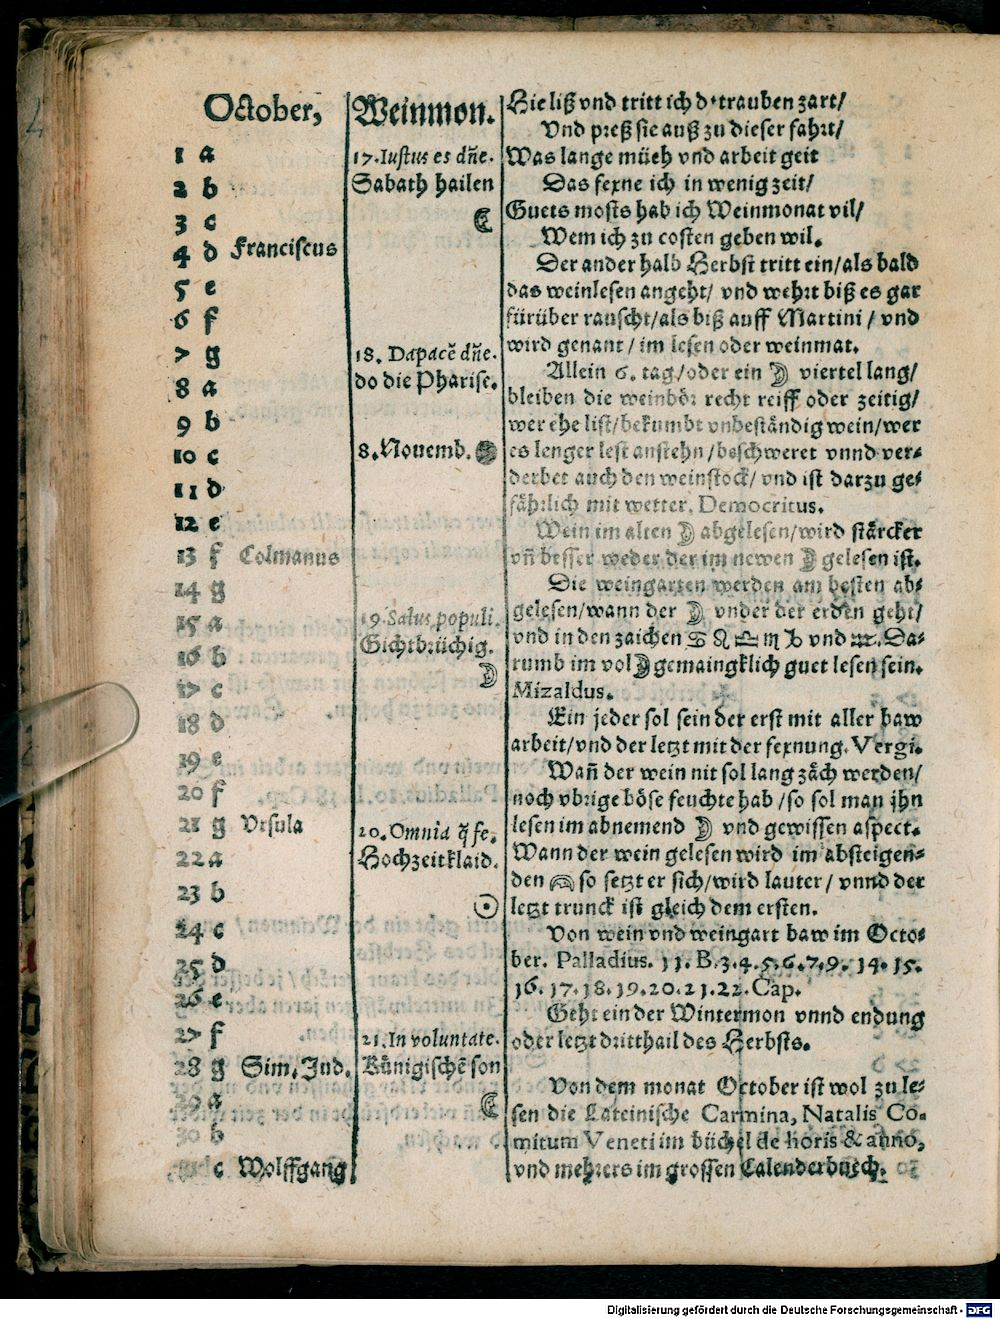 October,
1 a
2 b
3 c
4 d Franciscus
5 e
6 f
7 g
8 a
9 b
10 c
11 d
12 e
13 f Colmanus
14 g
15 a
16 b
17 c
18 d
19 e
20 f
21 g Vrsula
22 a
23 b
24 c
25 d
26 e
27 f
28 g Sim. Jud.
29 a
30 b
c Wolffgang
Weinmon.
17. Iustus es dñe.
Sabath hailen
☾
18. Dapacē dñe.
do die Pharise.
8. Nouemb.
19. Salus populi.
Gichtbrüchig.
☽
20. Omnia q̃ fe.
Hochzeitklaid.
☉
21. In voluntate.
Künigischē son
☾
Hie liß vnd tritt ich d' trauben zart/
Vnd preß sie auß zu dieser fahrt/
Was lange müeh vnd arbeit geit
Das fexne ich in wenig zeit/
Guets mosts hab ich Weinmonat vil/
Wem ich zu costen geben wil.
Der ander halb Herbst tritt ein/als bald
das weinlesen angeht/ vnd wehrt biß es gar
fürüber rauscht/als biß auff Martini / vnd
wird genant / im lesen oder weinmat.
Allein 6. tag/oder ein ☽ viertel lang/
bleiben die weinbör recht reiff oder zeitig/
wer ehe list/bekumbt vnbeständig wein/wer
es lenger lest anstehn/beschweret vnnd ver⸗
derbet auch den weinstock/ vnd ist darzu ge⸗
fährlich mit wetter. Democritus.
Wein im alten ☽ abgelesen/wird stärcker
vñ besser weder der im newen ☽ gelesen ist.
Die weingarten werden am besten ab⸗
gelesen/wann der ☽ vnder der erden geht/
vnd in den zaichen ♋ ♌ ♎ ♏ ♑ vnd ♒. Da⸗
rumb im vol ☽ gemaingklich guet lesen sein.
Mizaldus.
Ein jeder sol sein der erst mit aller baw
arbeit/vnd der letzt mit der fexnung. Vergi.
Wañ der wein nit sol lang zäch werden/
noch vbrige böse feuchte hab /so sol man jhn
lesen im abnemend ☽ vnd gewissen aspect.
Wann der wein gelesen wird im absteigen⸗
den so setzt er sich/wird lauter/ vnnd der
letzt trunck ist gleich dem ersten.
Von wein vnd weingart baw im Octo⸗
ber. Palladius. 11. B. 3. 4. 5. 6. 7. 9. 14. 15.
16. 17. 18. 19. 20. 21. 22. Cap.
Geht ein der Wintermon vnnd endung
oder letzt dritthail des Herbsts.
Von dem monat October ist wol zu le⸗
sen die Lateinische Carmina, Natalis Co⸗
mitum Veneti im büchel de horis & anno,
vnd mehrers im grossen Calenderbuech.
Digitalisierung gefördert durch die Deutsche Forschungsgemeinschaft - DFG